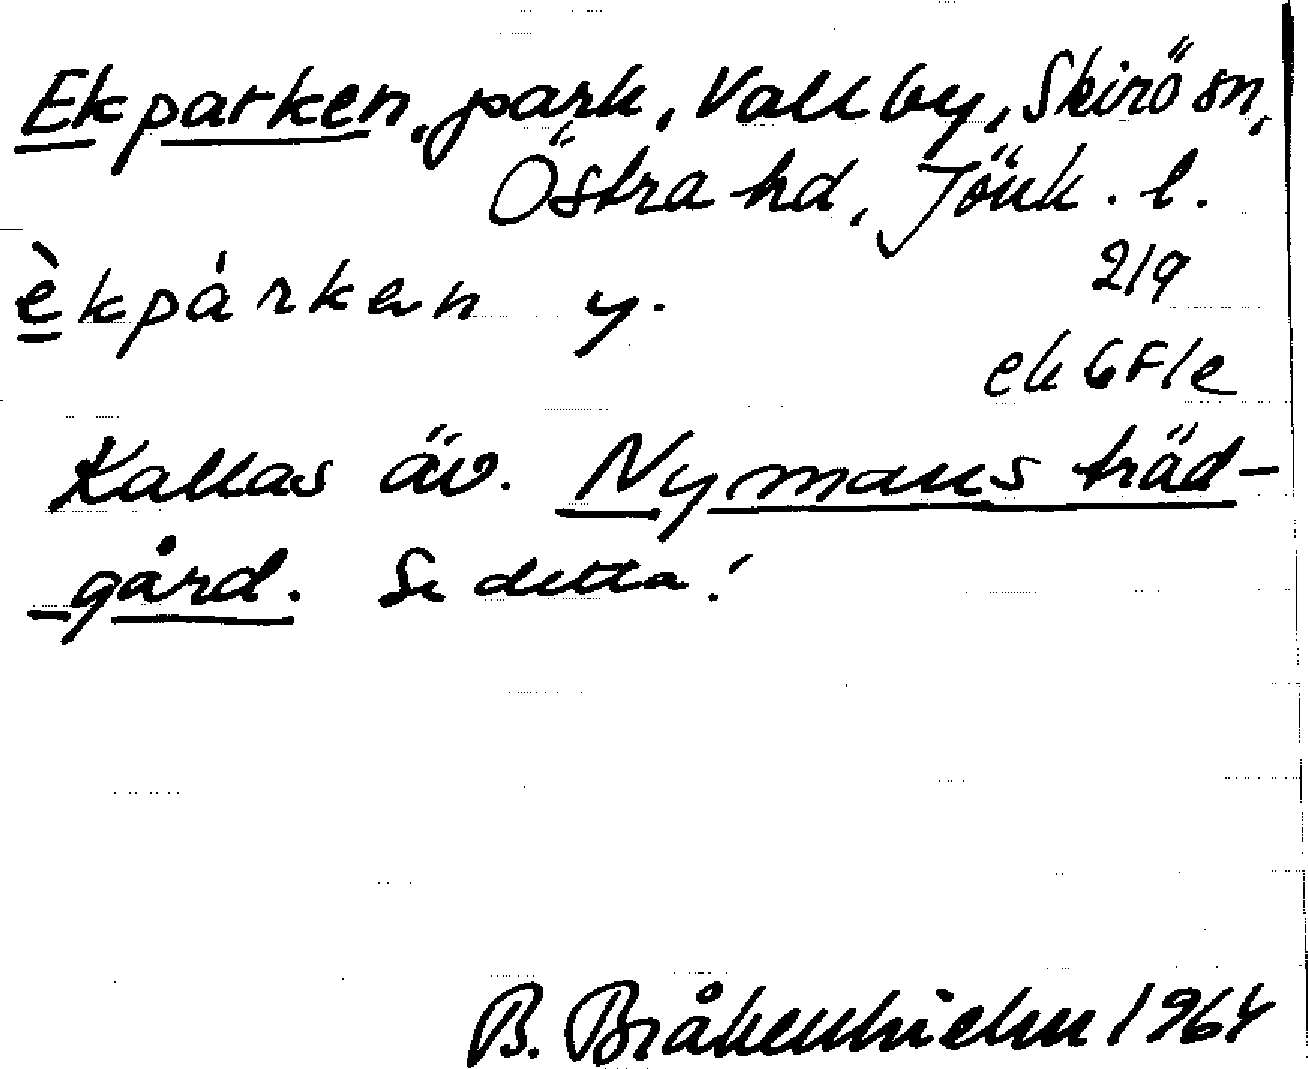 Ekparken, park, Vallby, Skirö sn,
Östra hd, Jönk. l.
èkpárken y.
219
ek 6F1e
Kallas äv. Nymans träd-
gård. Se detta!
B. Bråkenhielm 1964